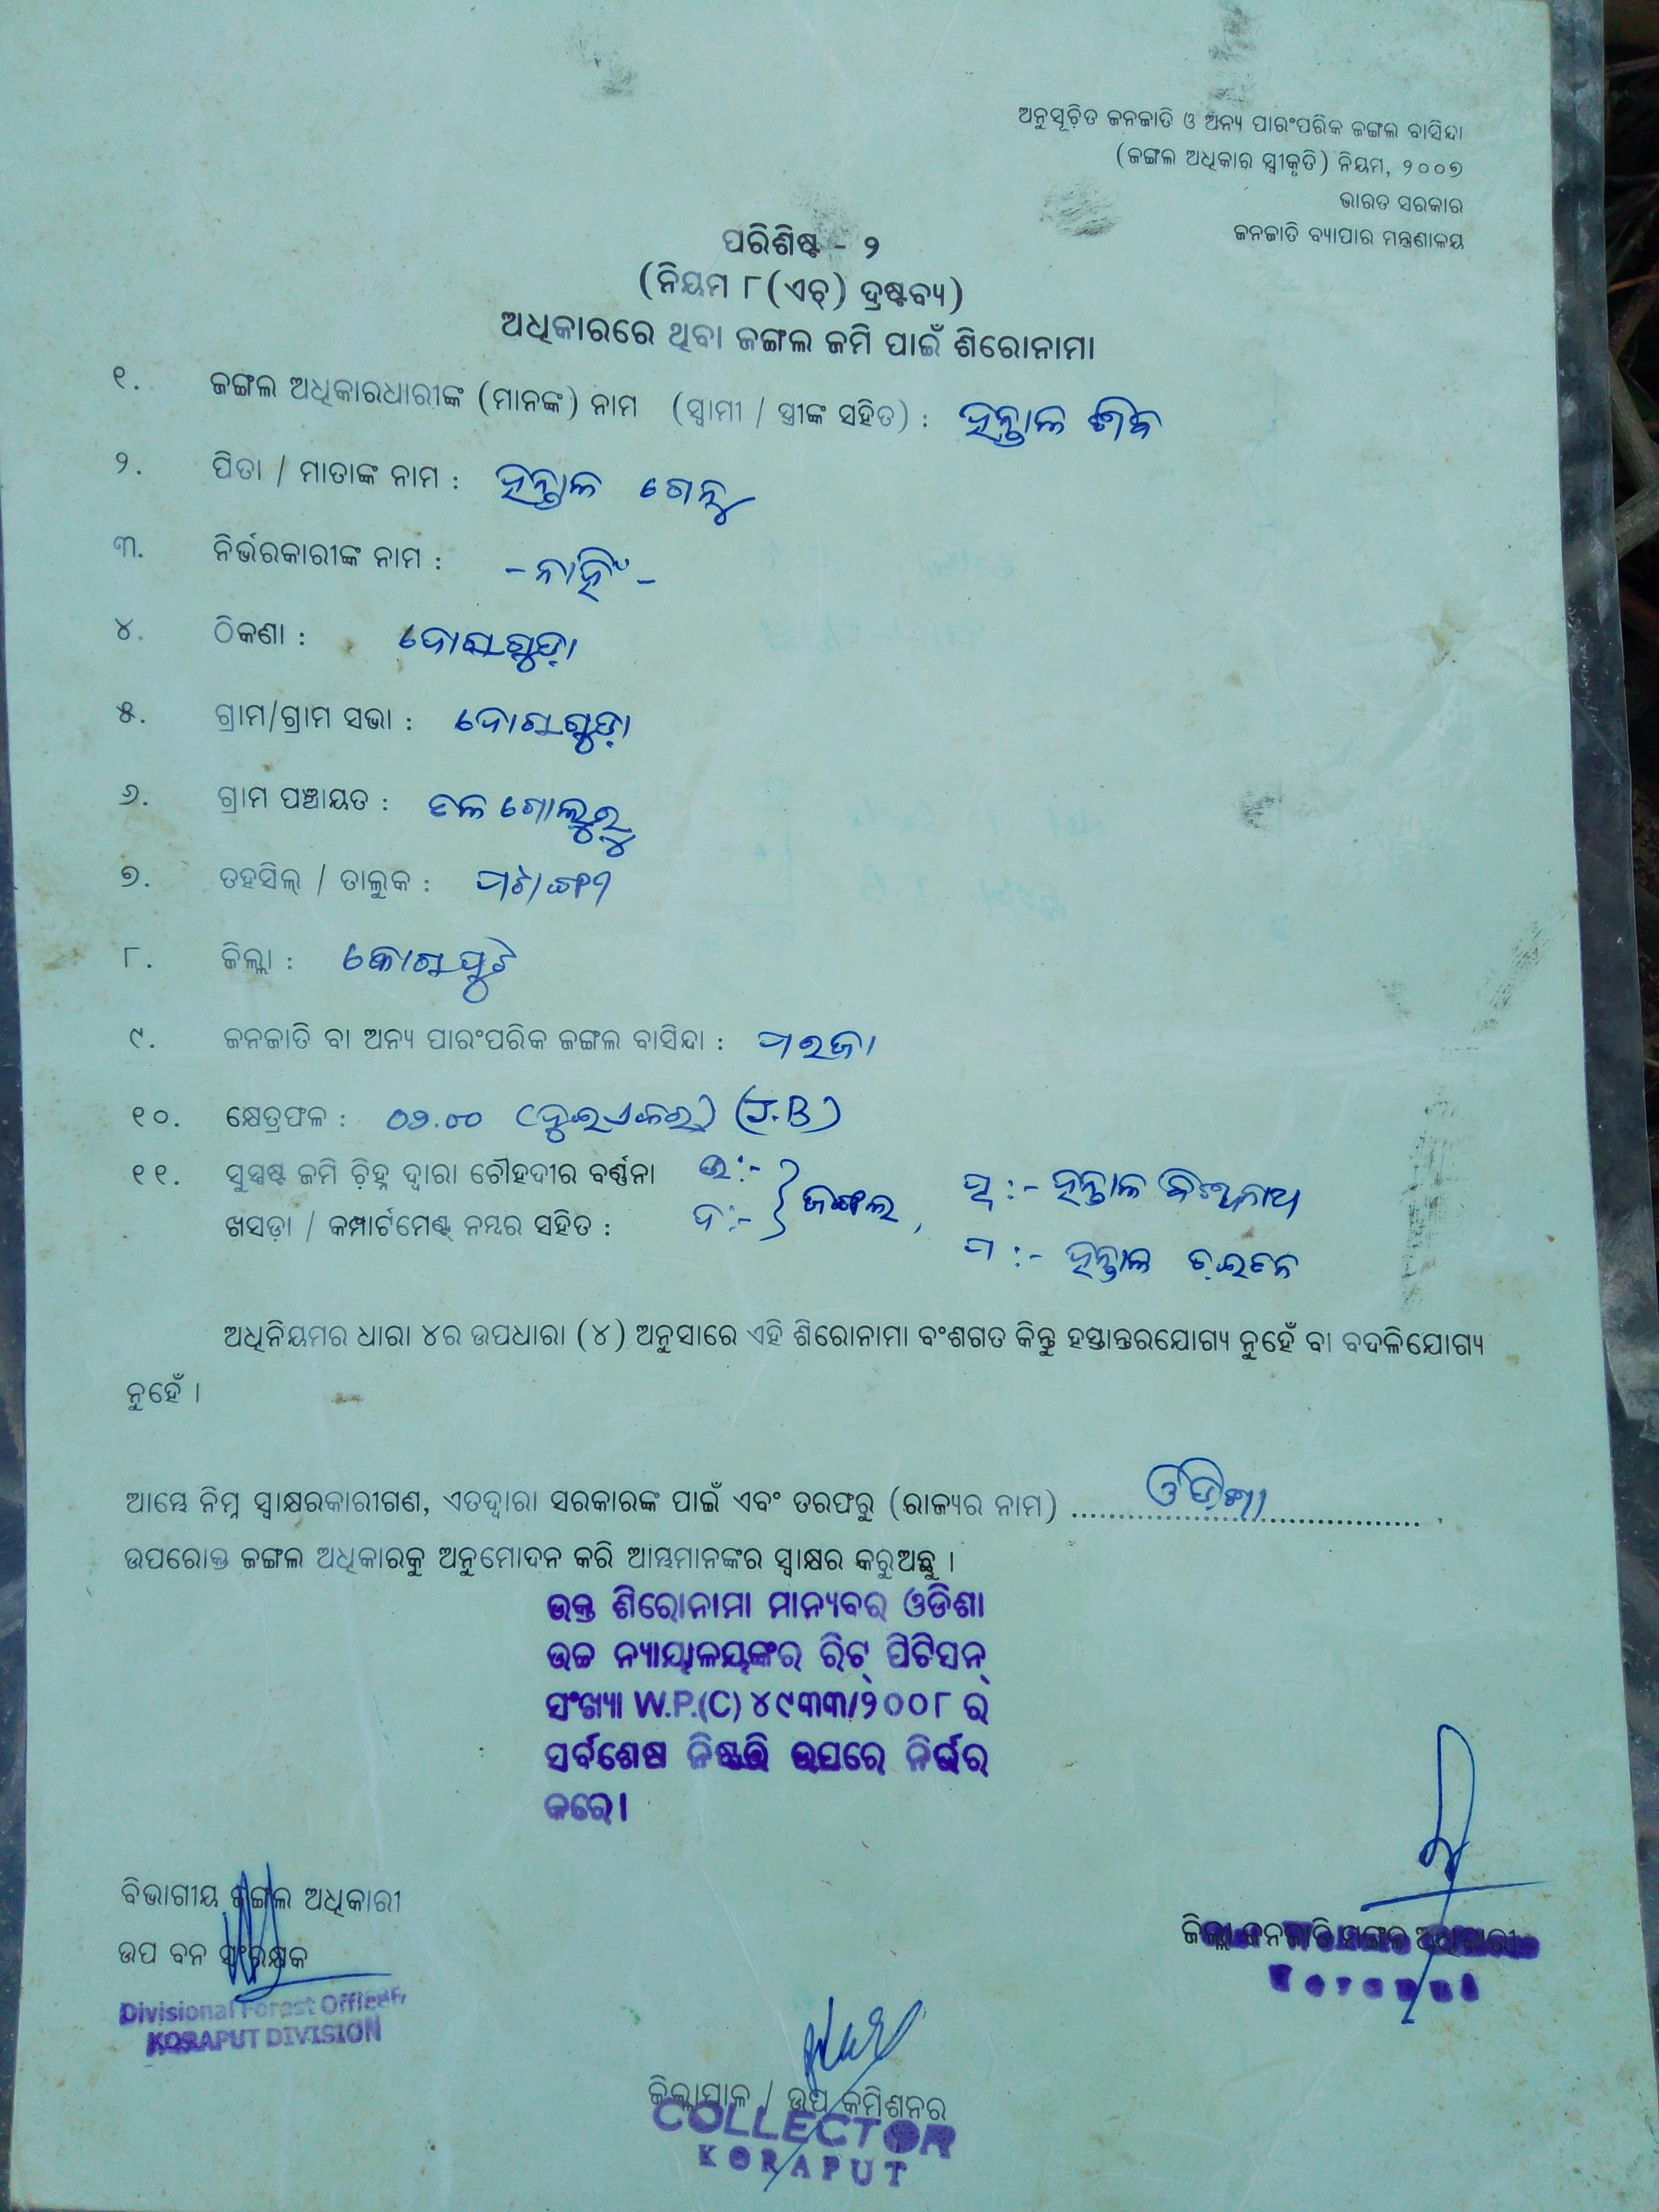 ଅନୁସୂଚିତ ଜନଜାତି ଓ ଅନ୍ୟ ପାରଂପରିକ ଜଙ୍ଗଲ ବାସିନ୍ଦା
(ଜଙ୍ଗଲ ଅଧିକାର ସ୍ୱୀକୃତି) ନିୟମ, ୨୦୦୭
ଭାରତ ସରକାର
ଜନଜାତି ବ୍ୟାପାର ମନ୍ତ୍ରଣାଳୟ
ପରିଶିଷ୍ଟ - ୨
(ନିୟମ ୮(ଏଚ୍) ଦ୍ରଷ୍ଟବ୍ୟ)
ଅଧିକାରରେ ଥିବା ଜଙ୍ଗଲ ଜମି ପାଇଁ ଶିରୋନାମା
୧. ଜଙ୍ଗଲ ଅଧିକାରଧାରୀଙ୍କ (ମାନଙ୍କ) ନାମ (ସ୍ୱାମୀ / ସ୍ତ୍ରୀଙ୍କ ସହିତ) : ହନ୍ତାଳ ଶିବ
୨. ପିତା / ମାତାଙ୍କ ନାମ : ହନ୍ତାଳ
୩. ନିର୍ଭରକାରୀଙ୍କ ନାମ : -ନାହିଁ-
୪. ଠିକଣା : ଦୋରାଗୁଡ଼ା
୫. ଗ୍ରାମ/ଗ୍ରାମ ସଭା : ଦୋରାଗୁଡ଼ା
୬. ଗ୍ରାମ ପଞ୍ଚାୟତ :
୭. ତହସିଲ୍ / ତାଲୁକ : ପଟାଙ୍ଗୀ
୮. ଜିଲ୍ଲା : କୋରାପୁଟ
୯. ଜନଜାତି ବା ଅନ୍ୟ ପାରଂପରିକ ଜଙ୍ଗଲ ବାସିନ୍ଦା : ପରଜା
୧୦. କ୍ଷେତ୍ରଫଳ : ୦୨.୦୦ (ଦୁଇଏକର) (J.B)
୧୧. ସୁସ୍ପଷ୍ଟ ଜମି ଚିହ୍ନ ଦ୍ୱାରା ଚୌହଦୀର ବର୍ଣ୍ଣନା ଉ:- ପୂ:- ହନ୍ତାଳ ବିଶ୍ୱନାଥ
ଖସଡ଼ା / କମ୍ପାର୍ଟମେଣ୍ଟ୍ ନମ୍ବର ସହିତ : ଦ:- } ଜଙ୍ଗଲ, ପ:- ହନ୍ତାଳ
ଅଧିନିୟମର ଧାରା ୪ର ଉପଧାରା (୪) ଅନୁସାରେ ଏହି ଶିରୋନାମା ବଂଶଗତ କିନ୍ତୁ ହସ୍ତାନ୍ତରଯୋଗ୍ୟ ନୁହେଁ ବା ବଦଳିଯୋଗ୍ୟ
ନୁହେଁ ।
ଆମ୍ଭେ ନିମ୍ନ ସ୍ୱାକ୍ଷରକାରୀଗଣ, ଏତଦ୍ୱାରା ସରକାରଙ୍କ ପାଇଁ ଏବଂ ତରଫରୁ (ରାଜ୍ୟର ନାମ) ଓଡ଼ିଶା ,
ଉପରୋକ୍ତ ଜଙ୍ଗଲ ଅଧିକାରକୁ ଅନୁମୋଦନ କରି ଆମ୍ଭମାନଙ୍କର ସ୍ୱାକ୍ଷର କରୁଅଛୁ ।
ଉକ୍ତ ଶିରୋନାମା ମାନ୍ୟବର ଓଡିଶା
ଉଚ୍ଚ ନ୍ୟାୟାଳୟଙ୍କର ରିଟ୍ ପିଟିସନ୍
ସଂଖ୍ୟା W.P.(C) ୪୯୩୩/୨୦୦୮ ର
ସର୍ବଶେଷ ନିଷ୍ପତ୍ତି ଉପରେ ନିର୍ଭର
କରେ।
ବିଭାଗୀୟ ଜଙ୍ଗଲ ଅଧିକାରୀ
ଉପ ବନ ସଂରକ୍ଷକ
Divisional Forest Officer,
KORAPUT DIVISION
ଜିଲ୍ଲା ଜନଜାତି ମଙ୍ଗଳ ଅଧିକାରୀ
Koraput
ଜିଲ୍ଲାପାଳ / ଉପ କମିଶନର
COLLECTOR
KORAPUT